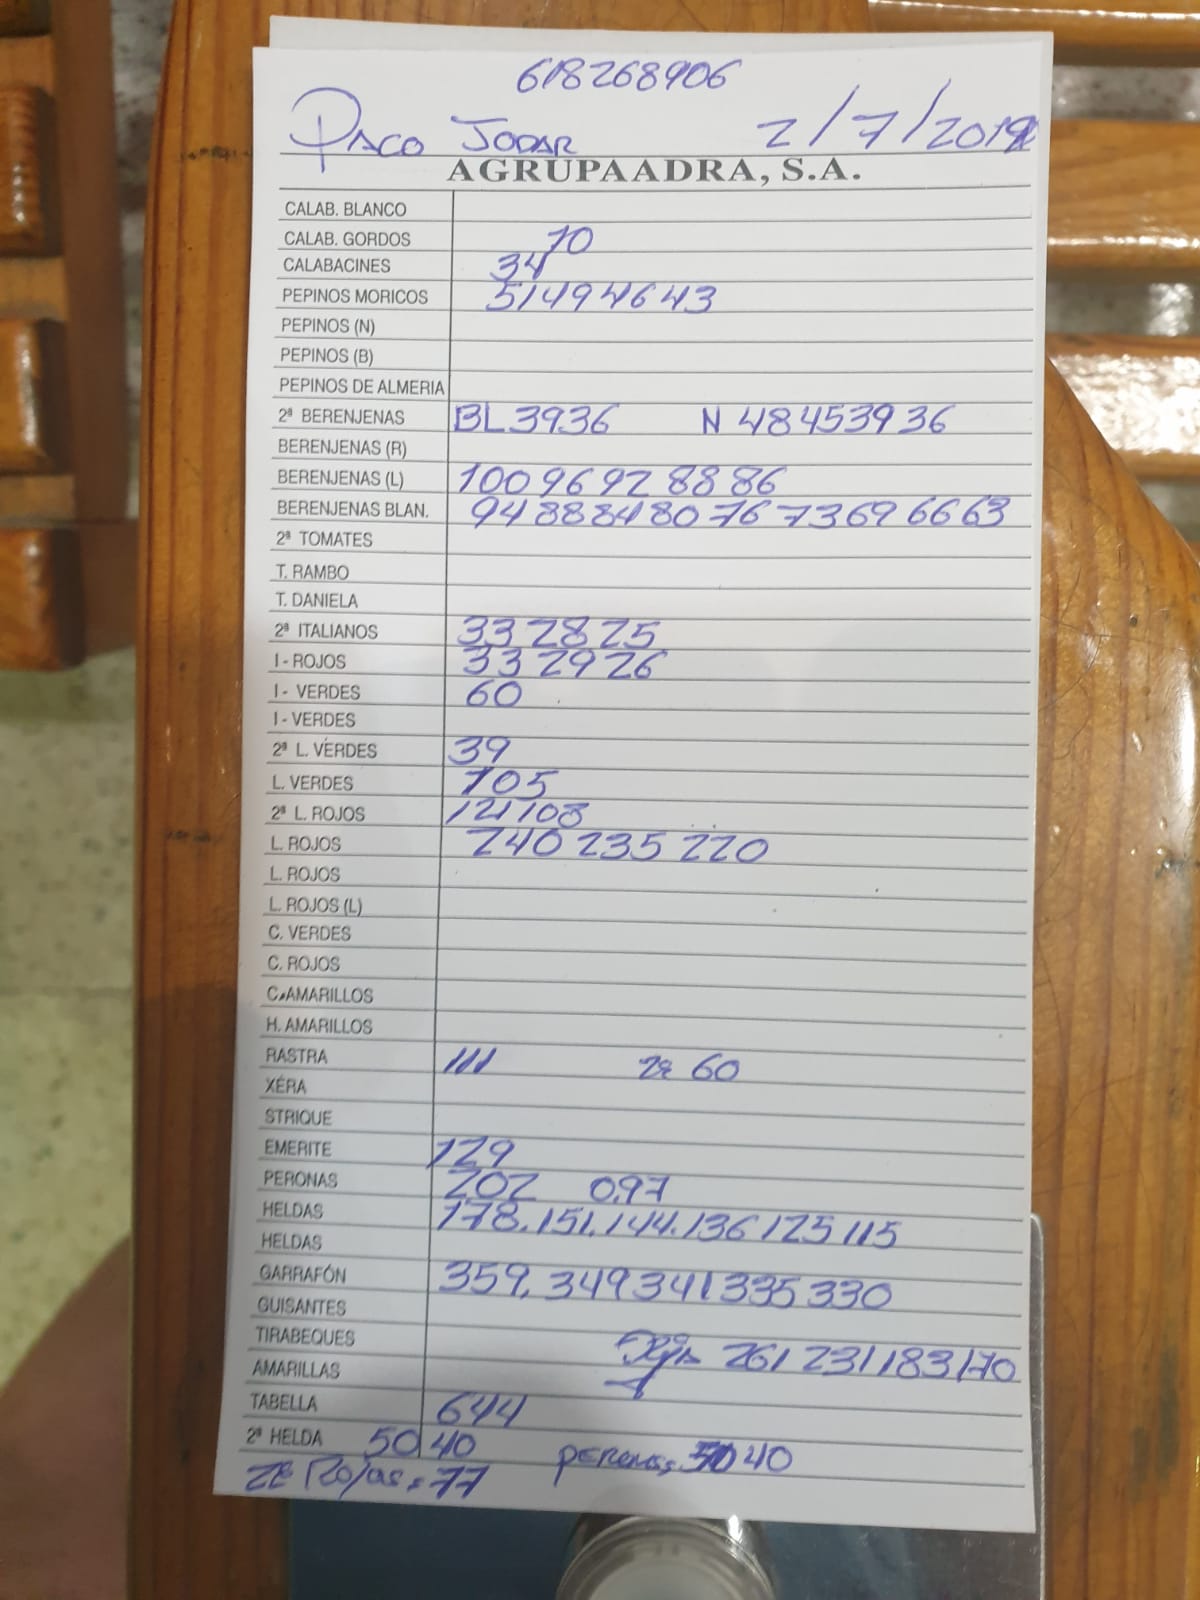 618268906
PACO JODAR 2/7/2019
AGRUPAADRA, S.A.
CALAB. BLANCO
CALAB. GORDOS 10
CALABACINES 34
PEPINOS MORICOS 51494643
PEPINOS (N)
PEPINOS (B)
PEPINOS DE ALMERIA
2ª BERENJENAS BL 3936 N 48453936
BERENJENAS (R)
BERENJENAS (L) 100 96 92 88 86
BERENJENAS BLAN. 94 88 84 80 76 73 69 66 63
2ª TOMATES
T. RAMBO
T. DANIELA
2ª ITALIANOS 33 28 25
I - ROJOS 33 29 26
I - VERDES 60
I - VERDES
2ª L. VERDES 39
L. VERDES 105
2ª L. ROJOS 121 108
L. ROJOS 240 235 220
L. ROJOS
L. ROJOS (L)
C. VERDES
C. ROJOS
C. AMARILLOS
H. AMARILLOS
RASTRA 111 2ª 60
XÉRA
STRIQUE
EMERITE 129
PERONAS 202 0,97
HELDAS 178.151.144.136 125 115
HELDAS
GARRAFÓN 359. 349 341 335 330
GUISANTES
TIRABEQUES
261 231 183 170
AMARILLAS
TABELLA 644
2ª HELDA 50 40 peronas 50 40
2ª Rojas = 77